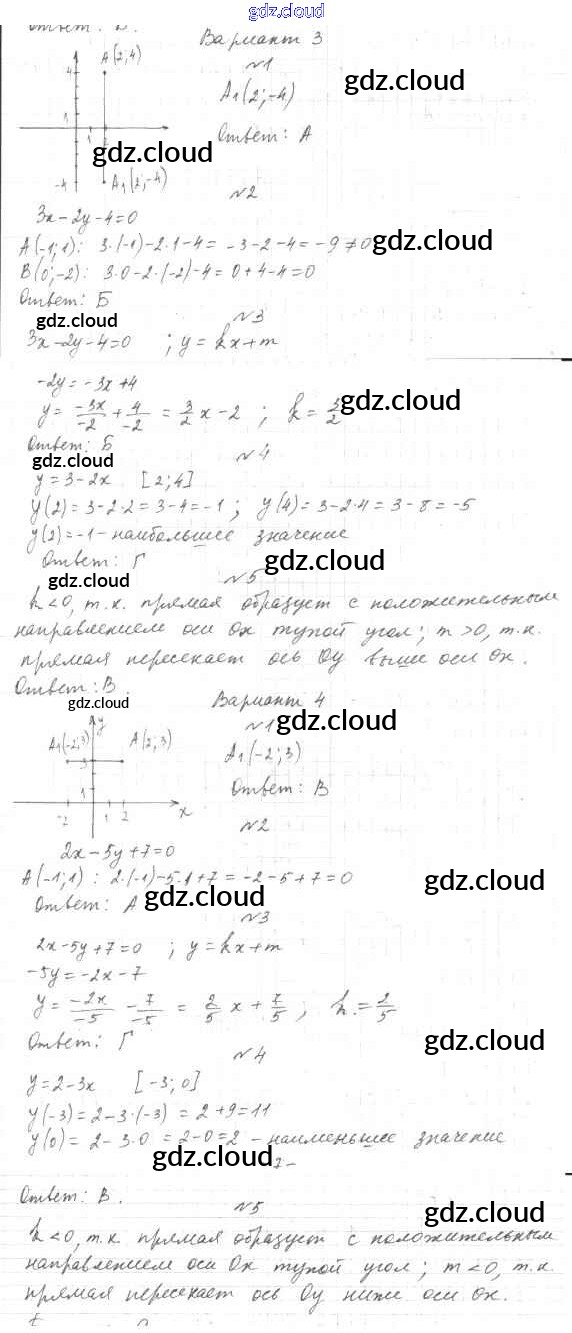 gdz.cloud
Ответ: В.
Вариант 3
A(2;4)
4
№1
A₁(2;-4)
gdz.cloud
1
1 2
Ответ: А
gdz.cloud
-4
A₁(2;-4)
№2
3x-2y-4=0
A(-1;1): 3·(-1)-2·1-4= -3-2-4=-9≠0
gdz.cloud
B(0;-2): 3·0-2·(-2)-4=0+4-4=0
Ответ: Б
gdz.cloud
№3
3x-2y-4=0 ; y=kx+m
-2y=-3x+4
y= -3x/-2 + 4/-2 = 3/2 x-2 ; k= 3/2
gdz.cloud
Ответ: Б
gdz.cloud
№4
y=3-2x [2;4]
y(2)=3-2·2=3-4=-1; y(4)=3-2·4=3-8=-5
y(2)=-1-наибольшее значение
Ответ: Г
gdz.cloud
gdz.cloud
№5
k<0, т.к. прямая образует с положительным
направлением оси Ox тупой угол; m>0, т.к.
прямая пересекает ось Oy выше оси Ox.
Ответ: В.
gdz.cloud
Вариант 4
y
№1
gdz.cloud
A₁(-2;3)
A(2;3)
3
A₁(-2;3)
1
Ответ: В
-2
1 2
x
№2
2x-5y+7=0
A(-1;1): 2·(-1)-5·1+7=-2-5+7=0
gdz.cloud
Ответ: А
gdz.cloud
№3
2x-5y+7=0 ; y=kx+m
-5y=-2x-7
y= -2x/-5 - 7/-5 = 2/5 x+ 7/5 ; k= 2/5
Ответ: Г
gdz.cloud
№4
y=2-3x [-3;0]
y(-3)=2-3·(-3)=2+9=11
y(0)=2-3·0=2-0=2-наименьшее значение
gdz.cloud
Ответ: В.
№5
gdz.cloud
k<0, т.к. прямая образует с положительным
направлением оси Ox тупой угол; m<0, т.к.
прямая пересекает ось Oy ниже оси Ox.